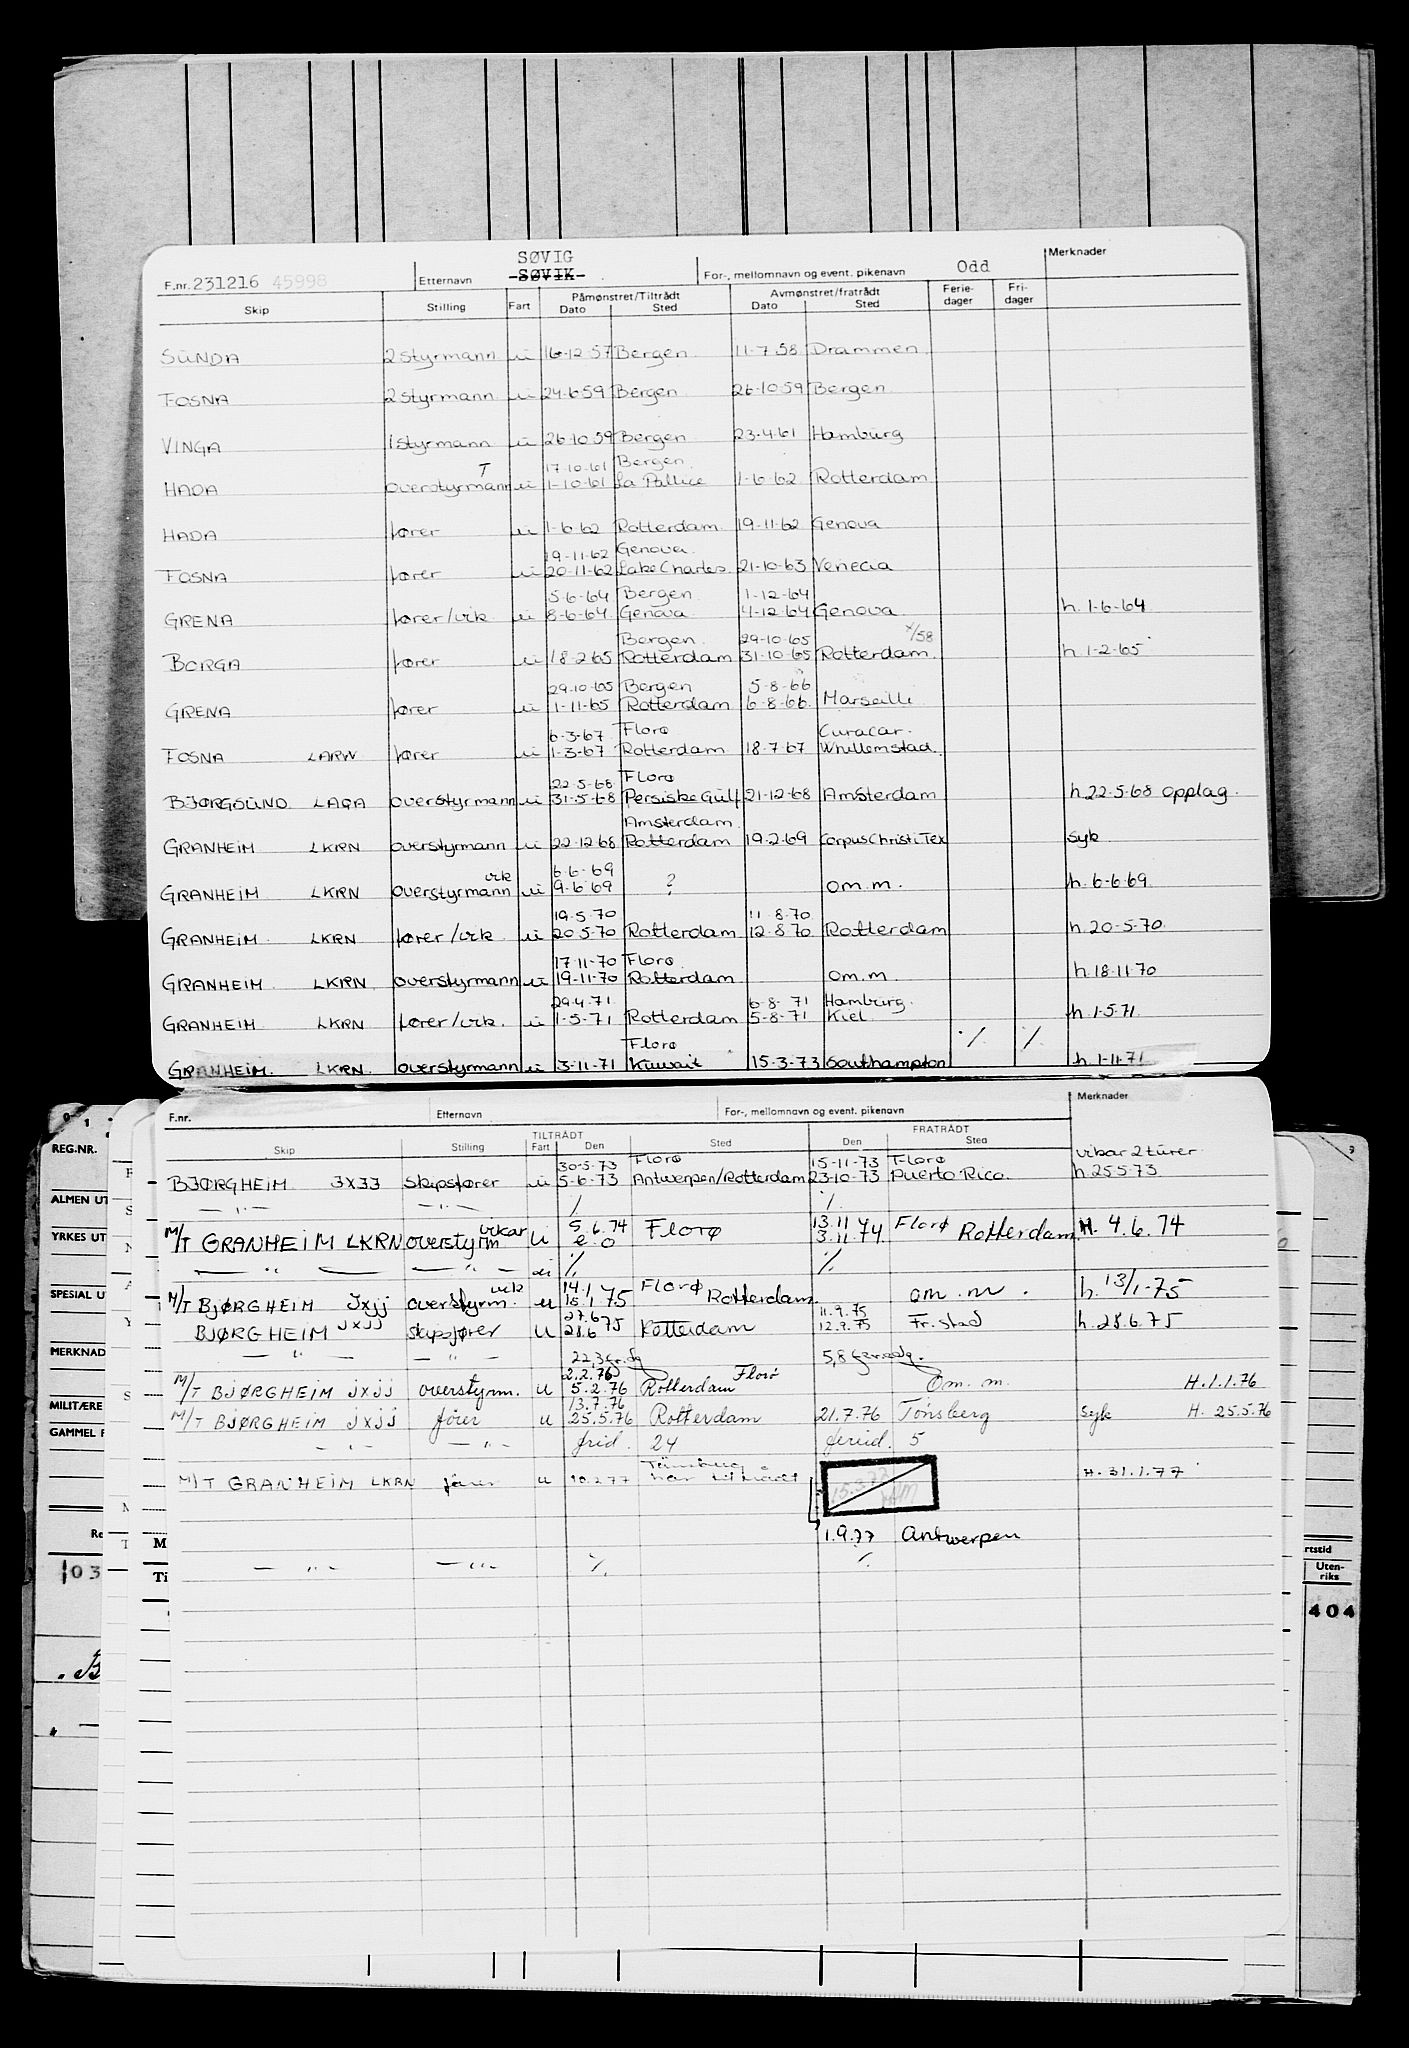 SØVIG
F.nr. 231216 45998 Etternavn SØVIK For-, mellomnavn og event. pikenavn Odd Merknader
Skip Stilling Fart Påmønstret/Tiltrådt Dato Sted Avmønstret/fratrådt Dato Sted Ferie-dager Fri-dager
SUNDA 2 styrmann u 16-12-57 Bergen 11-7-58 Drammen
FOSNA 2 styrmann u 24-6-59 Bergen 26-10-59 Bergen
VINGA 1 styrmann u 26-10-59 Bergen 23-4-61 Hamburg
T 17-10-61 Bergen
HADA overstyrmann u 1-10-61 La Pallice 1-6-62 Rotterdam
HADA fører u 1-6-62 Rotterdam 19-11-62 Genova
19-11-62 Genova
FOSNA fører u 20-11-62 Lake Charles 21-10-63 Venecia
5-6-64 Bergen 1-12-64
GRENA fører/vik u 8-6-64 Genova 4-12-64 Genova h. 1-6-64
Bergen 29-10-65 x/58
BORGA fører u 18-2-65 Rotterdam 31-10-65 Rotterdam h. 1-2-65
29-10-65 Bergen 5-8-66
GRENA fører u 1-11-65 Rotterdam 6-8-66 Marseille
6-3-67 Florø Curacar.
FOSNA LARW fører u 1-3-67 Rotterdam 18-7-67 Whillemstad
22-5-68 Florø
BJØRGSUND LAQA overstyrmann u 31-5-68 Persiske Gulf 21-12-68 Amsterdam h. 22-5-68 opplag.
Amsterdam
GRANHEIM LKRN overstyrmann u 22-12-68 Rotterdam 19-2-69 Corpus Christi Tex syk
vik 6-6-69 ?
GRANHEIM LKRN overstyrmann u 9-6-69 om.m. h. 6-6-69
19-5-70 11-8-70
GRANHEIM LKRN fører/vik u 20-5-70 Rotterdam 12-8-70 Rotterdam h. 20-5-70
17-11-70 Florø
GRANHEIM LKRN overstyrmann u 19-11-70 Rotterdam om.m h. 18-11-70
29-4-71 6-8-71 Hamburg.
GRANHEIM LKRN fører/vik. u 1-5-71 Rotterdam 5-8-71 Kiel h. 1-5-71
Florø ./. ./.
GRANHEIM LKRN overstyrmann u 3-11-71 Kuwait 15-3-73 Southampton h. 1-11-71
F.nr. Etternavn For-, mellomnavn og event. pikenavn Merknader
Skip Stilling TILTRÅDT Fart Den Sted FRATRÅDT Den Sted
30-5-73 Florø 15-11-73 Florø vikar 2 turer
BJØRGHEIM JXJJ Skipsfører u 5-6-73 Antwerpen/Rotterdam 23-10-73 Puerto Rico. h. 25 5-73
— " — — " — ./. ./.
vikar 5.6.74 13.11 74 Florø
M/T GRANHEIM LKRN overstyrm U e.o Florø 3.11.74 Rotterdam H. 4.6.74
— " — — " — u ./. ./.
vik 14.1 Florø
M/T BJØRGHEIM Jxjj overstyrm. u 15.1 75 Rotterdam om.m. h. 13/1-75
27.6 11.9.75
BJØRGHEIM JXJJ Skipsfører U 28.6 75 Rotterdam 12.9.75 Fr.stad h. 28.6.75
— " — — " — 22,3 5,8
2.2.76 Florø
M/T BJØRGHEIM jxjj overstyrm. u 5.2.76 Rotterdam Om. m. H. 1.1.76
13.7.76
M/T BJØRGHEIM jxjj fører u 25.5.76 Rotterdam 21.7.76 Tønsberg syk H. 25.5.76
— " — — " — frid. 24 feried. 5
Tønsberg
M/T GRANHEIM LKRN fører u 10.2.77 har tiltrådt H. 31.1.77
1.9.77 Antwerpen
— " — — " — ./. ./.
REG.NR.
ALMEN UT
YRKES UT
SPESIAL U
MERKNAD
MILITÆRE
GAMMEL F
Re
103
M
Ti
rtstid
Uten-riks
404